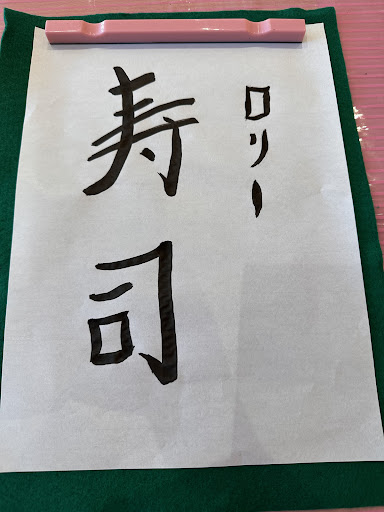 ロリー
寿司